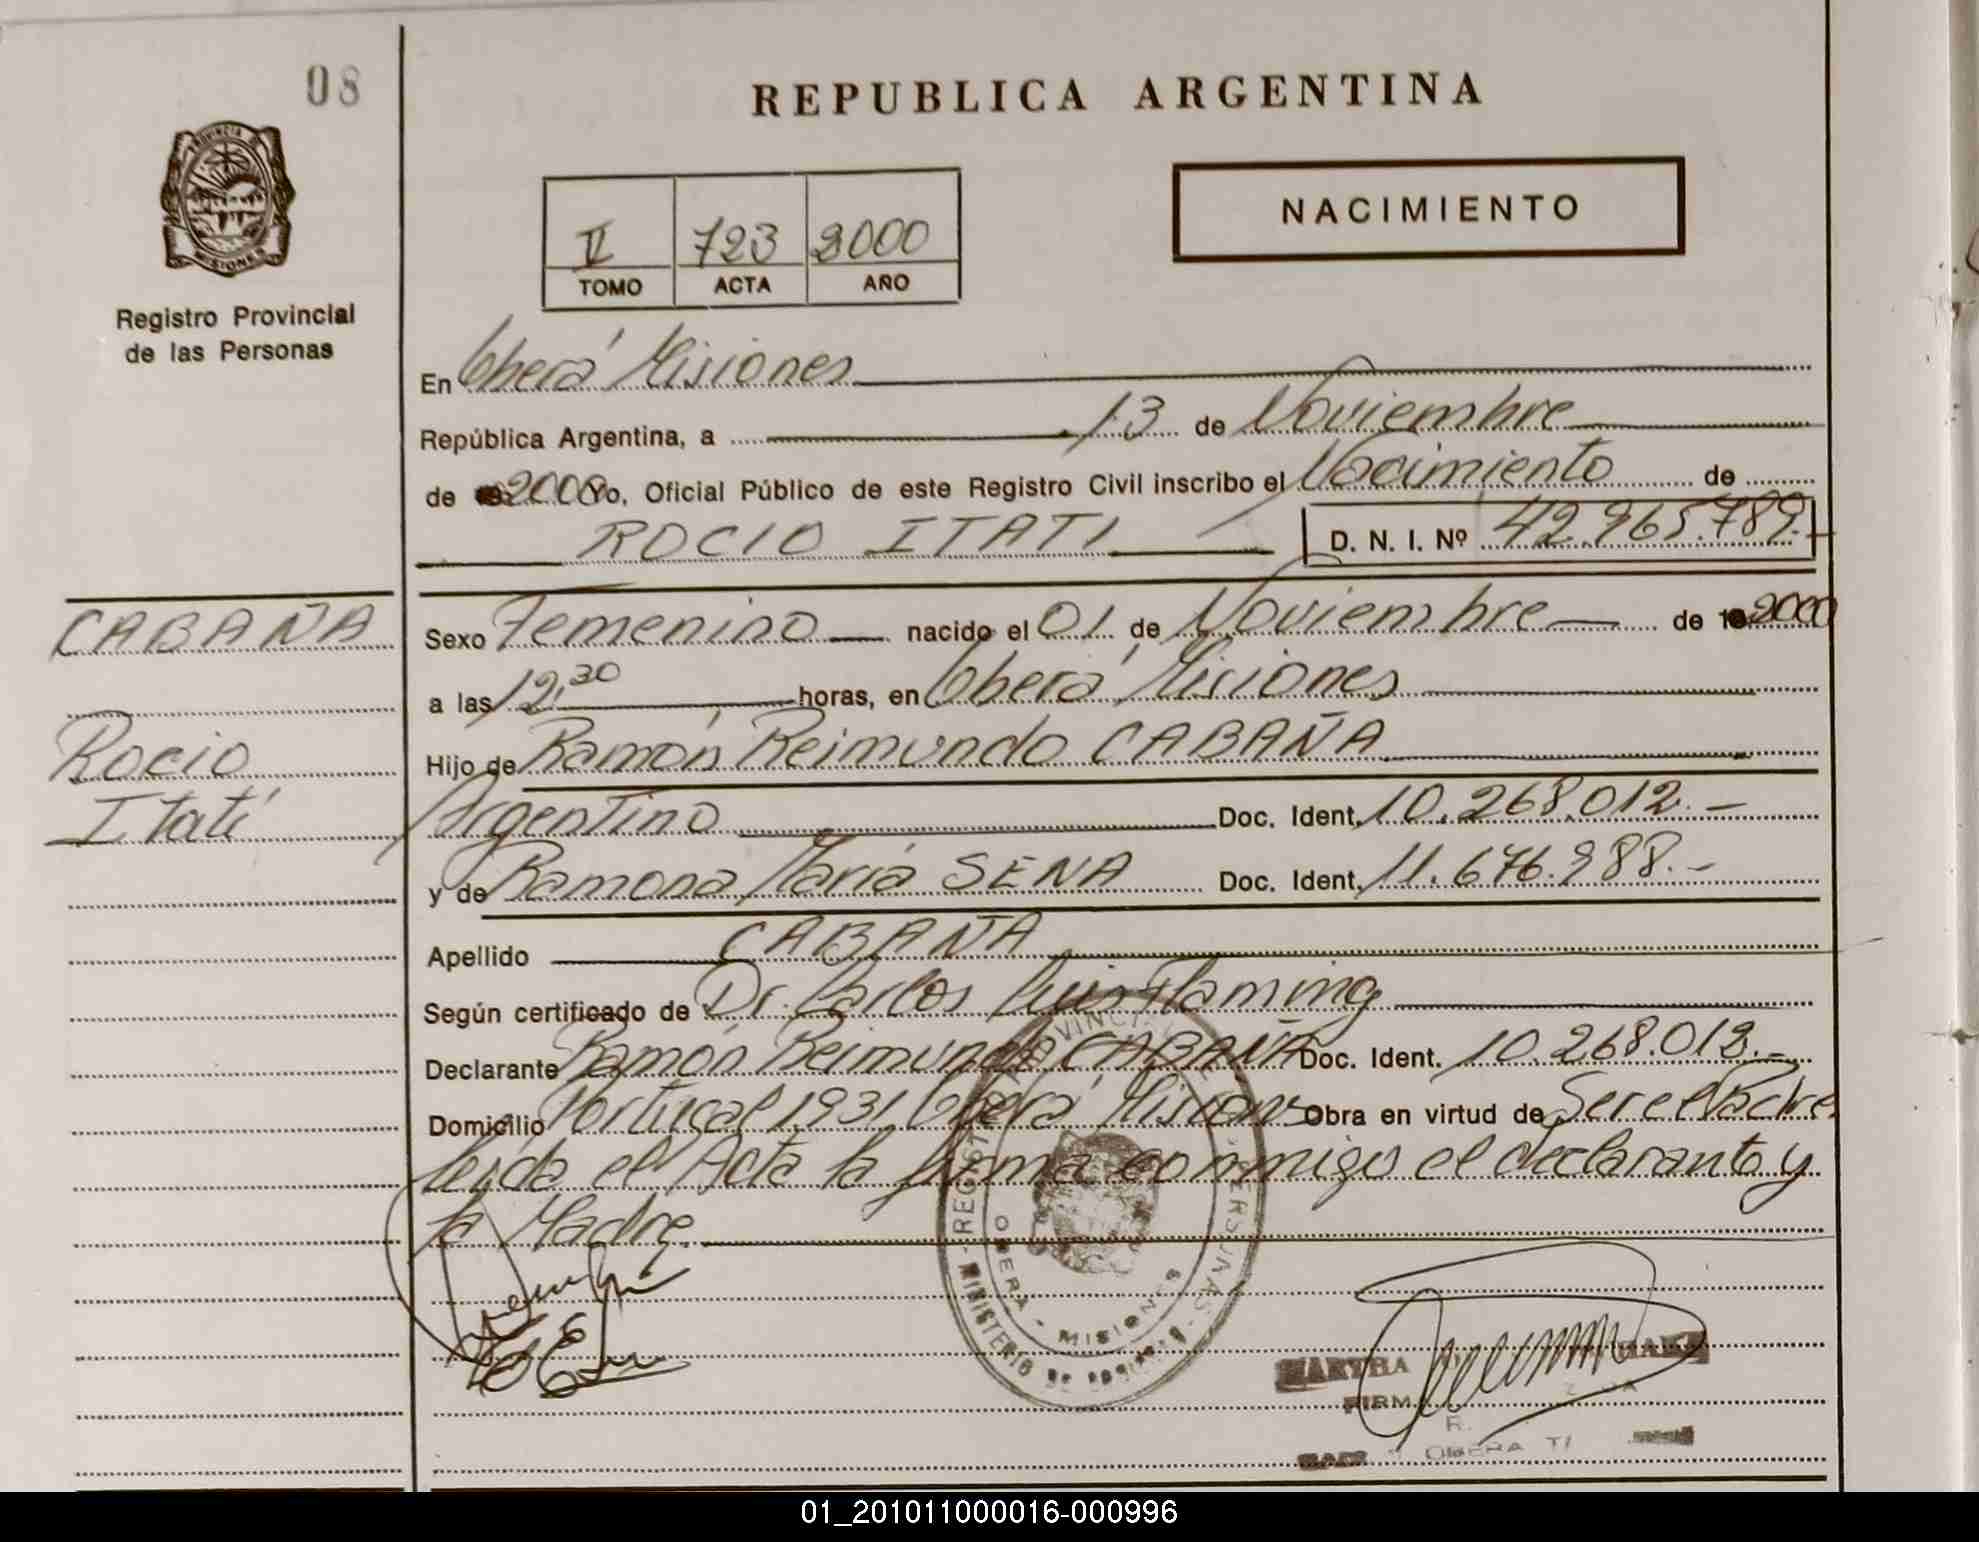 08
REPUBLICA ARGENTINA
PROVINCIA DE
MISIONES
Registro Provincial
de las Personas
NACIMIENTO
II 723 2000
TOMO ACTA AÑO
En Oberá Misiones
República Argentina, a 13 de Noviembre
de 2000 Yo, Oficial Público de este Registro Civil inscribo el Nacimiento de
ROCIO ITATI D. N. I. Nº 42.965.789.-
CABAÑA
Rocio
Itatí
Sexo Femenino nacido el 01 de Noviembre de 2000
a las 12,30 horas, en Oberá Misiones
Hijo de Ramón Reimundo CABAÑA
Argentino Doc. Ident. 10.268.012.-
y de Ramona María SENA Doc. Ident. 11.676.988.-
Apellido CABAÑA
Según certificado de Dr. Carlos Luis Flaming
Declarante Ramón Reimundo CABAÑA Doc. Ident. 10.268.012.-
Domicilio Portugal 1931 Oberá Misiones Obra en virtud de Ser el Padre
leída el Acta la firma conmigo el declarante y
la Madre.
MINISTERIO DE
OBERA - MISIONES
MARTHA
FIRM
OBERA
01_201011000016-000996